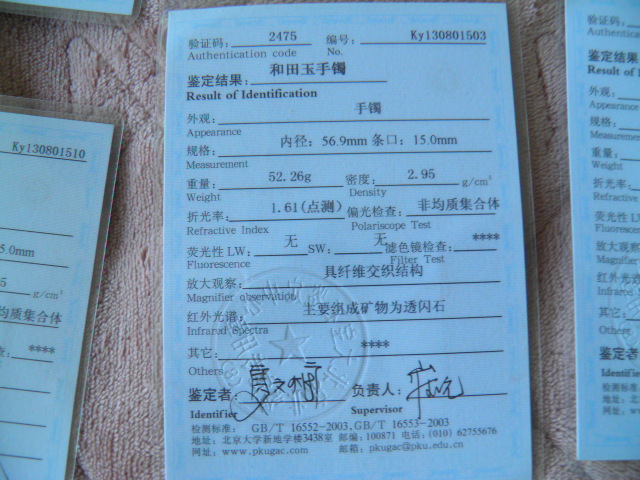 验证码: 2475 编号: Ky130801503
Authentication code No.
鉴定结果: 和田玉手镯
Result of Identification
外观: 手镯
Appearance
规格: 内径: 56.9mm 条口: 15.0mm
Measurement
重量: 52.26g 密度: 2.95 g/cm³
Weight Density
折光率: 1.61(点测) 偏光检查: 非均质集合体
Refractive Index Polariscope Test
荧光性 LW: 无 SW: 无 滤色镜检查: ****
Fluorescence Filter Test
放大观察: 具纤维交织结构
Magnifier observation
红外光谱: 主要组成矿物为透闪石
Infrared Spectra
其它: ****
Others
鉴定者: 负责人:
Identifier Supervisor
检测标准: GB/T 16552-2003, GB/T 16553-2003
地址: 北京大学新地学楼3438室 邮编: 100871 电话: (010) 62755676
网址: www.pkugac.com 邮箱: pkugac@pku.edu.cn
Ky130801510
5.0mm
5 g/cm³
均质集合体
****
验证码:
Authentication
鉴定结果
Result of Ident
外观:
Appearance
规格:
Measurement
重量:
Weight
折光率:
Refractive
荧光性 L
Fluorescence
放大观察
Magnifier
红外光谱
Infrared
其它:
Others
鉴定者
Identifier
检测标准:
地址: 北京
网址: www